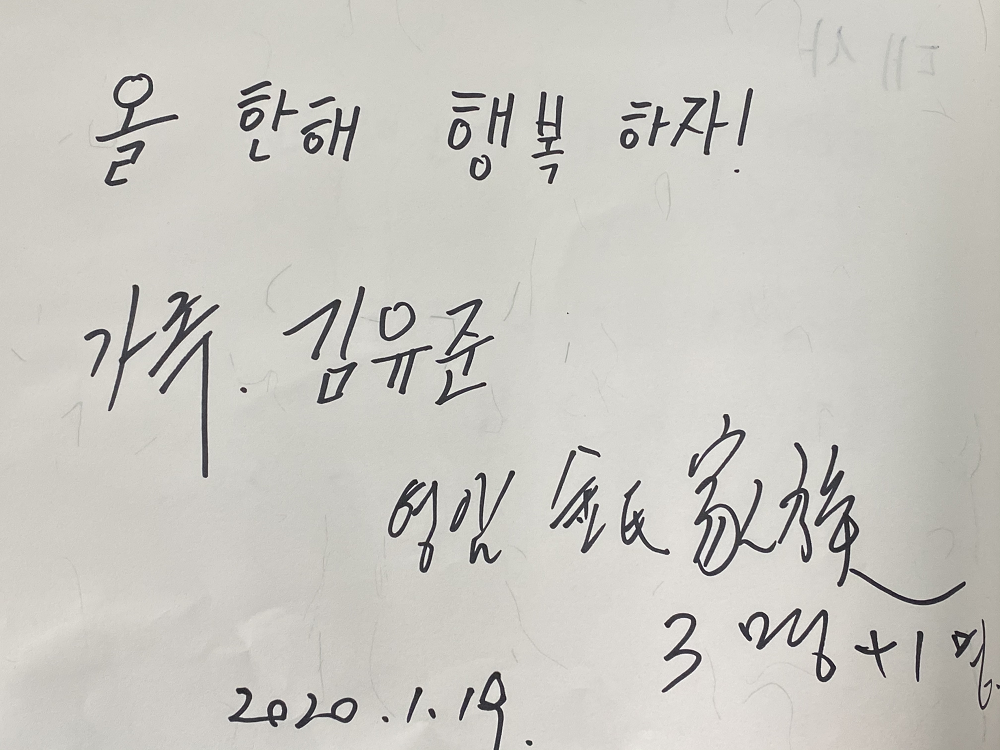 올 한해 행복 하자!
가족. 김유준
영암 金氏 家族
3명 +1명.
2020.1.19.